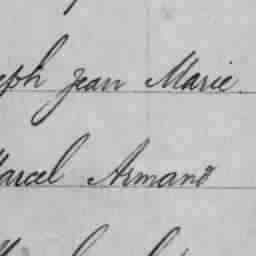 eph Jean Marie
arcel Armand